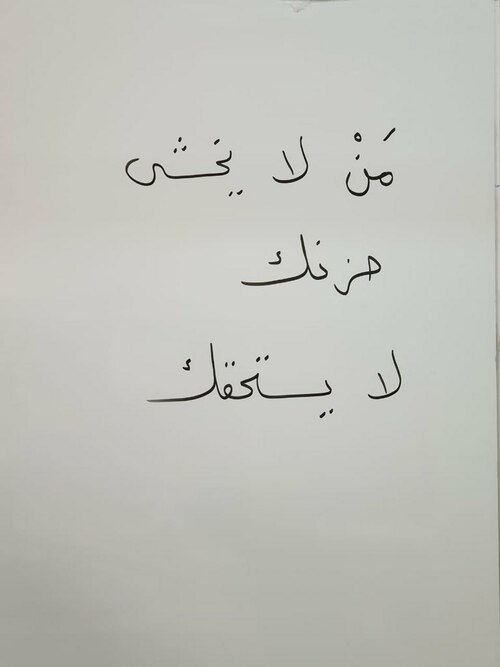 مَنْ لا يخشى
حزنك
لا يستحقك